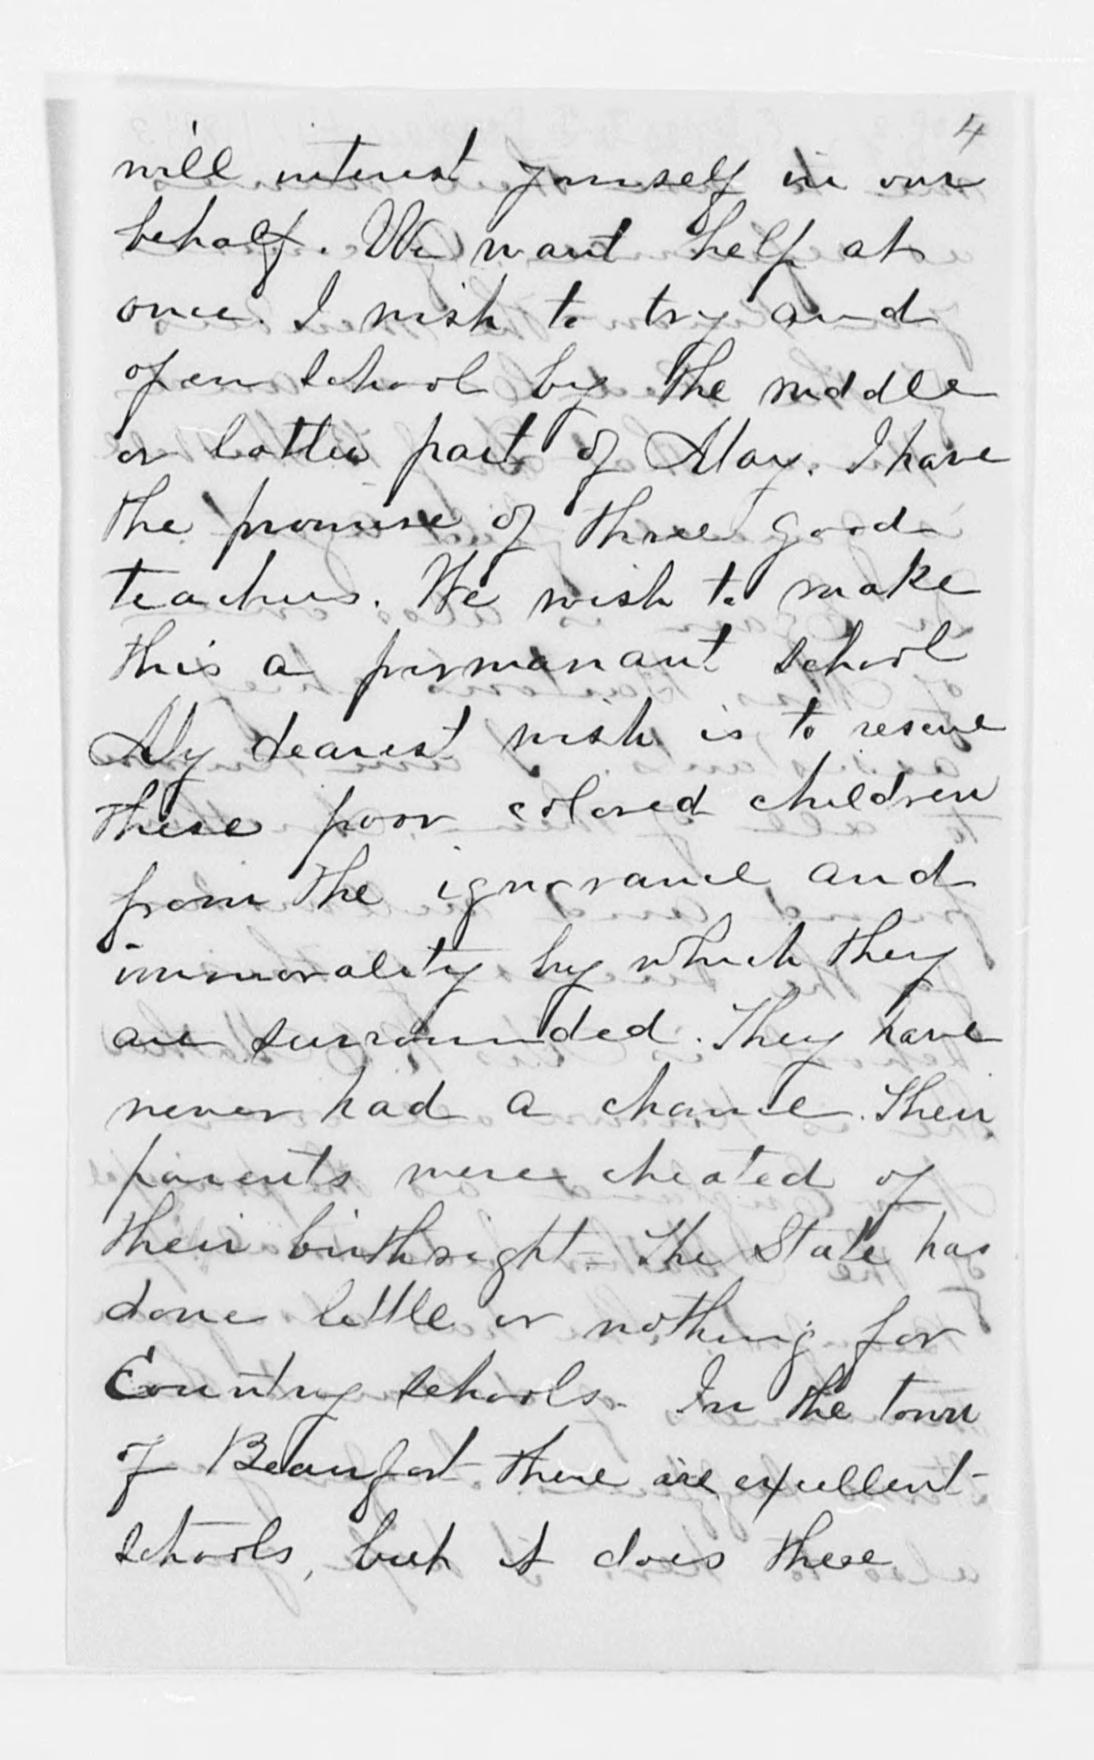 4
will interest yourself in our
behalf. We want help at
once. I wish to try and
open school by the middle
or latter part of May. I have
the promise of three good
teachers. We wish to make
this a permanant school
My dearest wish is to rescue
these poor colored children
from the ignorance and
immorality by which they
are surrounded. They have
never had a chance. Their
parents were cheated of
their birthright - The State has
done little or nothing for
Country schools. In the town
of Beaufort there are excellent
schools, but it does these